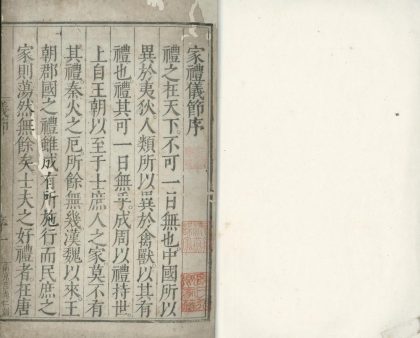 家禮儀節序
禮之在天下不可一日無也中國所以
異於夷狄人類所以異於禽獸以其有
禮也禮其可一日無乎成周以禮持世
上自王朝以至于士庶人之家莫不有
其禮秦火之厄所餘無幾漢魏以來王
朝郡國之禮雖或有所施行而民庶之
家則蕩然無餘矣士夫之好禮者在唐